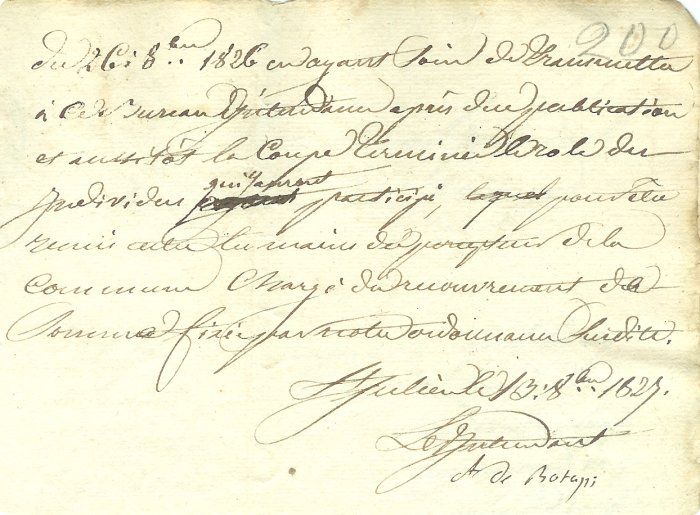 200
du 26: 8.bre 1826 en ayant Soin de transmettre
à ce Bureau d'Intendance après due publication
et aussitôt la Coupe terminée le role des
Individus qui y auront participé, pour être
remis entre les mains du percepteur de la
Commune Chargé du recouvrement des
Sommes fixées par notre ordonnance Susdite.
St Julien le 13: 8.bre 1827.
L'Intendant
de